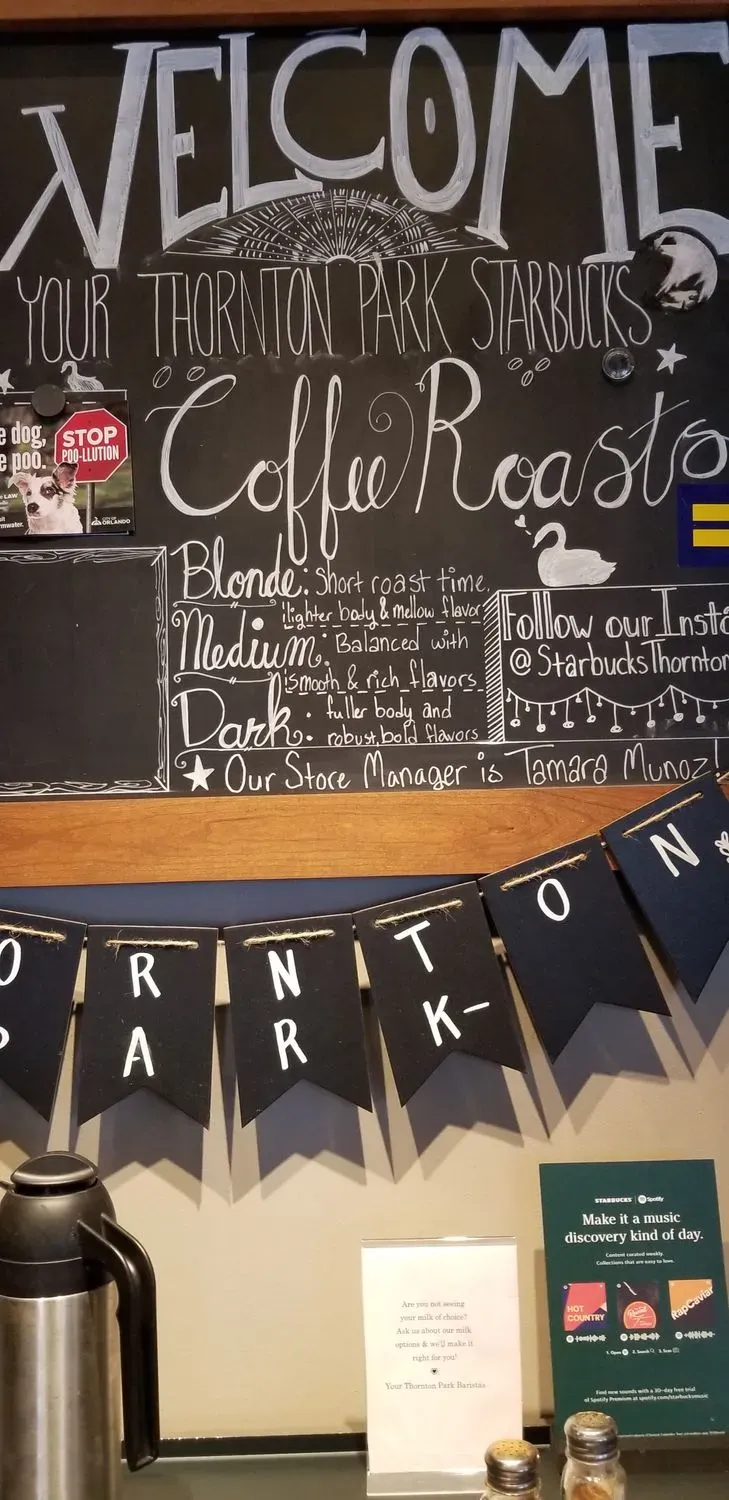 WELCOME
YOUR THORNTON PARK STARBUCKS
Coffee Roasts
e dog,
e poo.
STOP
POO-LLUTION
LAW
CITY OF
ORLANDO
Blonde: Short roast time,
lighter body & mellow flavor
Medium: Balanced with
smooth & rich flavors
Dark: fuller body and
robust, bold flavors
Follow our Insta
@StarbucksThornton
Our Store Manager is Tamara Munoz!
O R N T O N
P A R K-
STARBUCKS | Spotify
Make it a music
discovery kind of day.
Content curated weekly.
Collections that are easy to love.
HOT
COUNTRY
RapCaviar
1. Open 2. Search 3. Scan
Find new sounds with a 30-day free trial
of Spotify Premium at spotify.com/starbucksmusic
Are you not seeing
your milk of choice?
Ask us about our milk
options & we'll make it
right for you!
Your Thornton Park Baristas